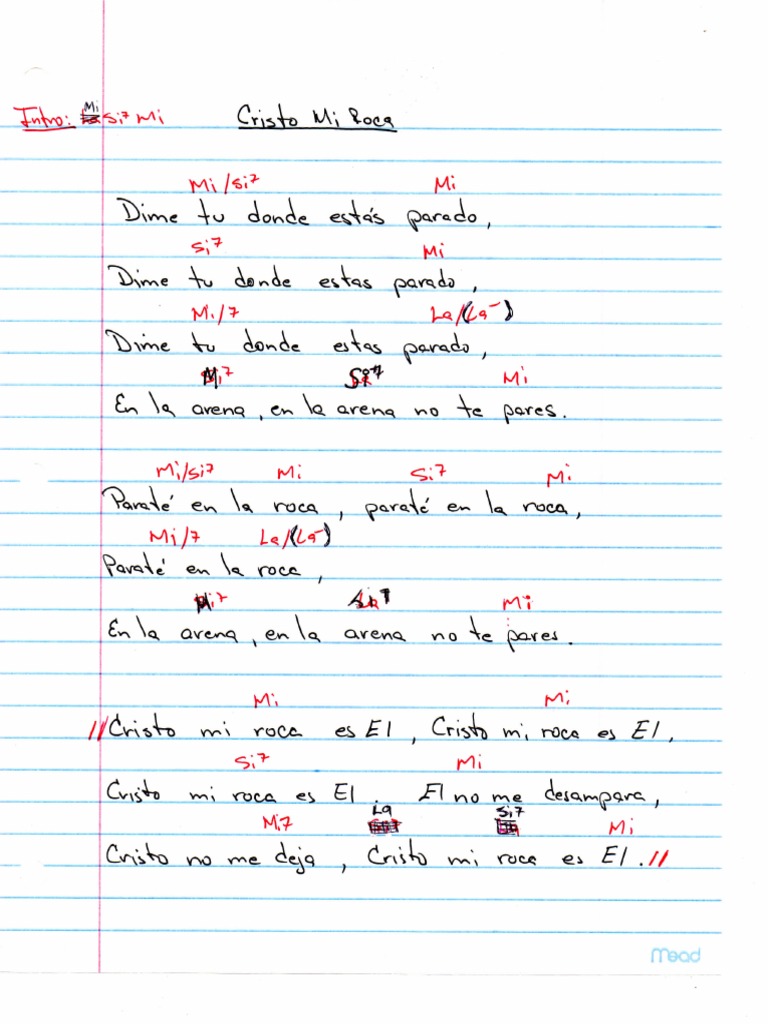 Intro: Mi Si7 Mi Cristo Mi Roca
Mi/Si7 Mi
Dime tu donde estás parado,
Si7 Mi
Dime tu donde estas parado,
Mi/7 La/(La-)
Dime tu donde estas parado,
Mi7 Si7 Mi
En la arena, en la arena no te pares.
Mi/Si7 Mi Si7 Mi
Paraté en la roca, paraté en la roca,
Mi/7 La/(La-)
Paraté en la roca,
Mi7 Si7 Mi
En la arena, en la arena no te pares.
Mi Mi
//Cristo mi roca es El, Cristo mi roca es El,
Si7 Mi
Cristo mi roca es El. El no me desampara,
Mi7 La Si7 Mi
Cristo no me deja, Cristo mi roca es El.//
Mead